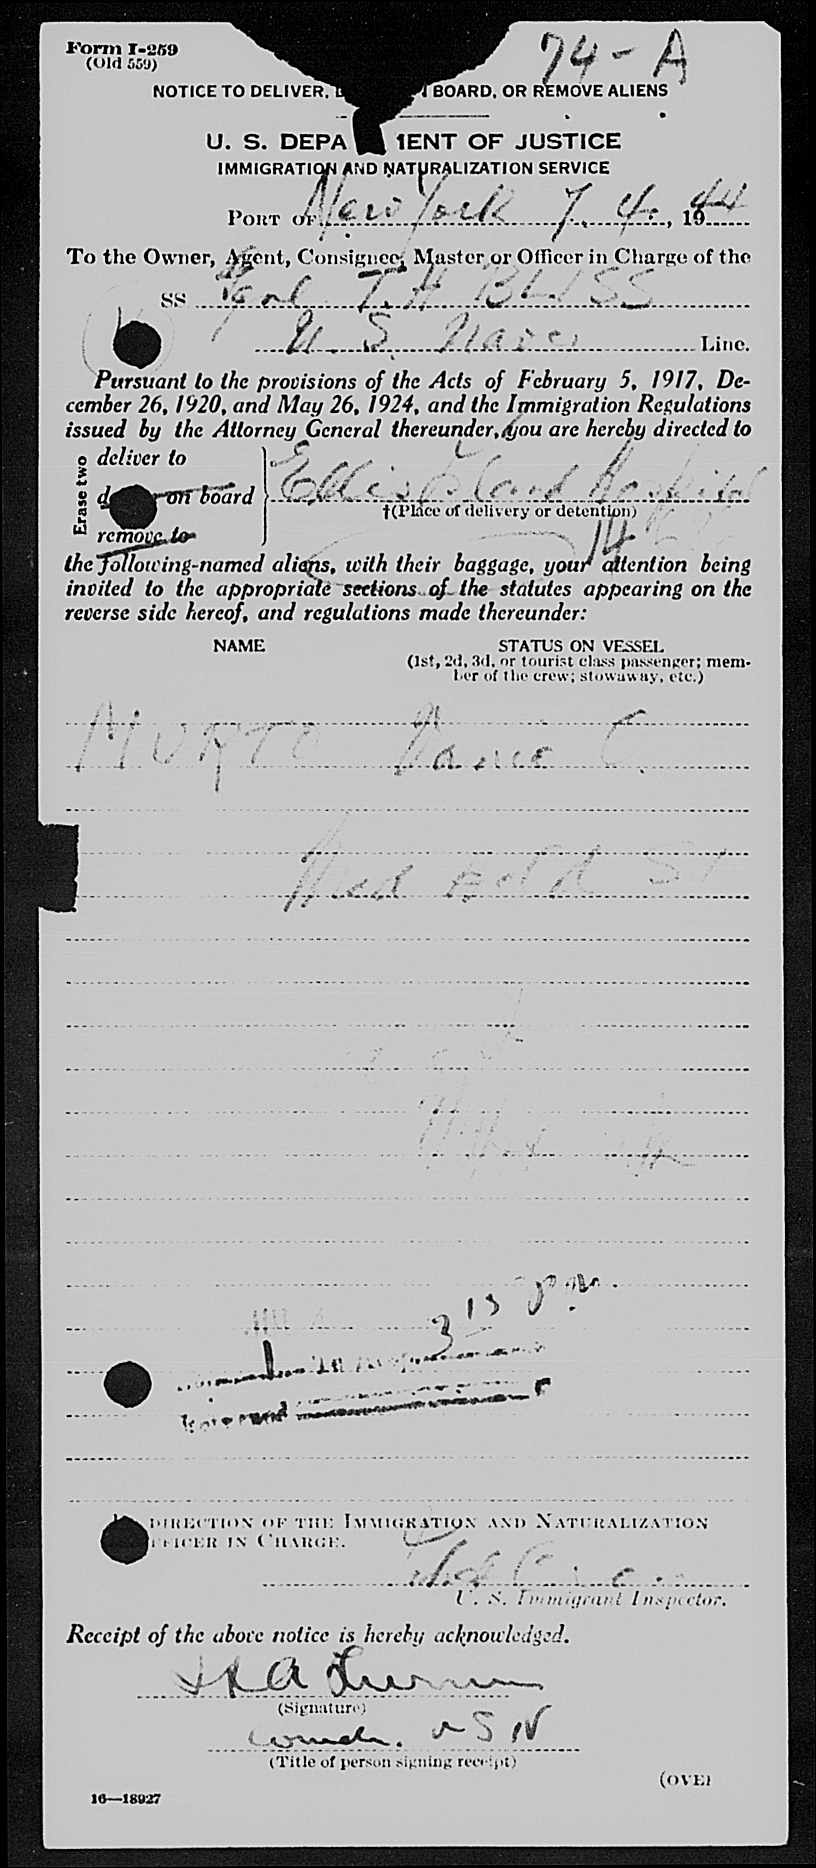 Form I-259
(Old 559)
74-A
NOTICE TO DELIVER, BOARD, OR REMOVE ALIENS
U. S. DEPA MENT OF JUSTICE
IMMIGRATION AND NATURALIZATION SERVICE
PORT OF New York 7. 4. , 1944
To the Owner, Agent, Consignee, Master or Officer in Charge of the
SS Genl T. H BLISS
U. S. Navy Line.
Pursuant to the provisions of the Acts of February 5, 1917, De-
cember 26, 1920, and May 26, 1924, and the Immigration Regulations
issued by the Attorney General thereunder, you are hereby directed to
Erase two
deliver to
d on board
remove to
Ellis Island Hospital
†(Place of delivery or detention)
14
the following-named aliens, with their baggage, your attention being
invited to the appropriate sections of the statutes appearing on the
reverse side hereof, and regulations made thereunder:
NAME STATUS ON VESSEL
(1st, 2d, 3d, or tourist class passenger; mem-
ber of the crew; stowaway, etc.)
MURTO C.
Med
3 15 pm.
DIRECTION OF THE IMMIGRATION AND NATURALIZATION
FFICER IN CHARGE.
U. S. Immigrant Inspector.
Receipt of the above notice is hereby acknowledged.
(Signature)
Comdr. USN
(Title of person signing receipt)
(OVER
16—18927